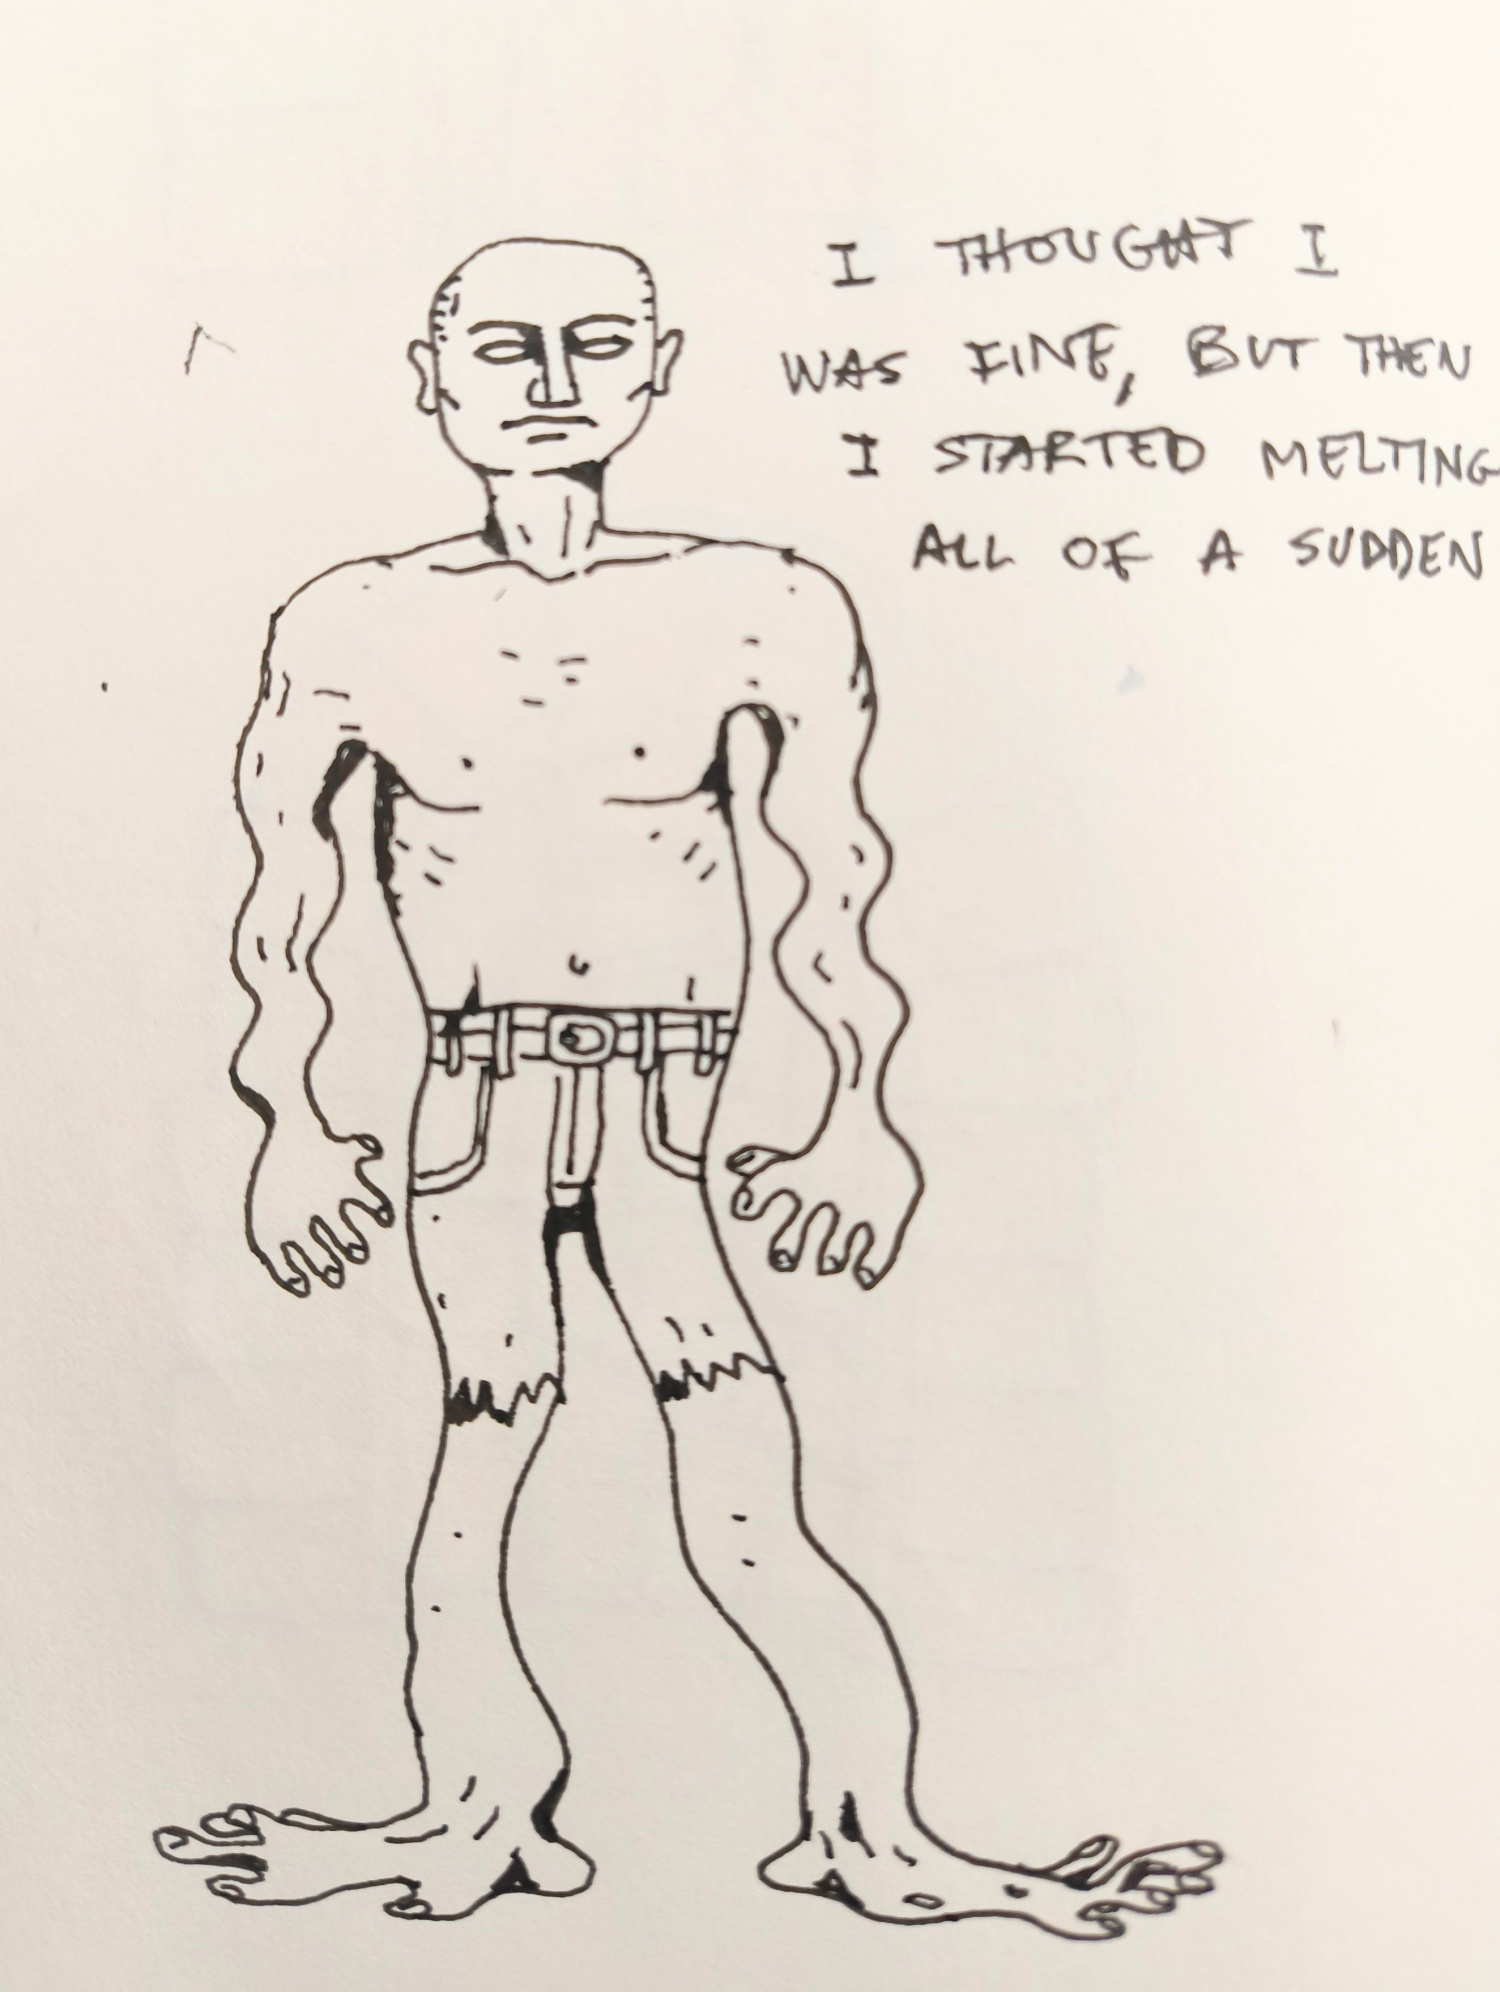 I THOUGHT I
WAS FINE, BUT THEN
I STARTED MELTING
ALL OF A SUDDEN